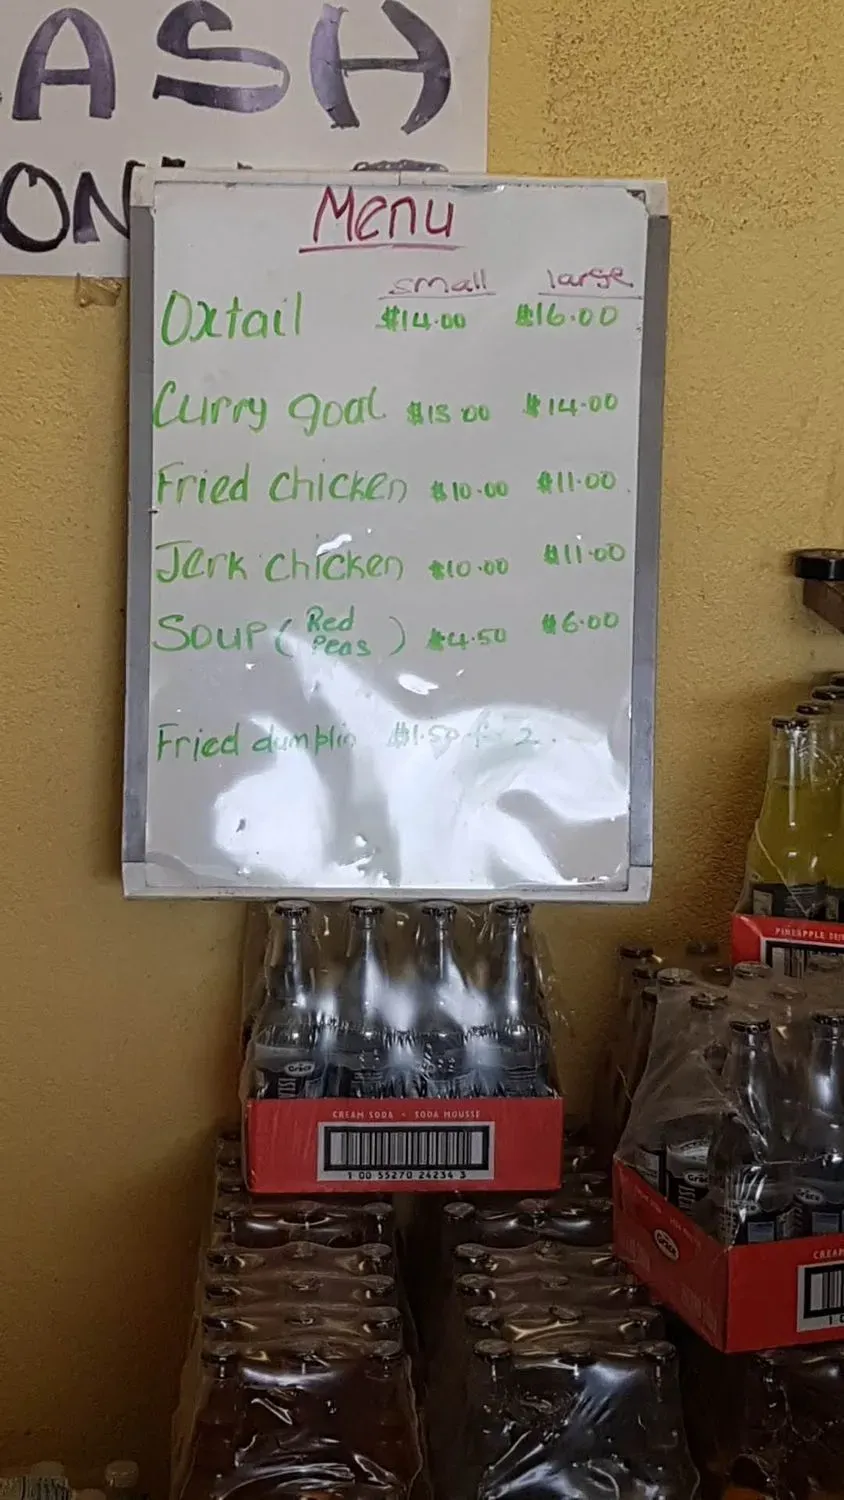 ASH
ON
Menu
small large
Oxtail $14.00 $16.00
Curry goat $13.00 $14.00
Fried chicken $10.00 $11.00
Jerk chicken $10.00 $11.00
Soup (Red Peas) $4.50 $6.00
Fried dumplin $1.50 for 2
PINEAPPLE
Grace
CREAM SODA - SODA MOUSSE
1 00 55270 24234 3
Grace
Grace
CREAM